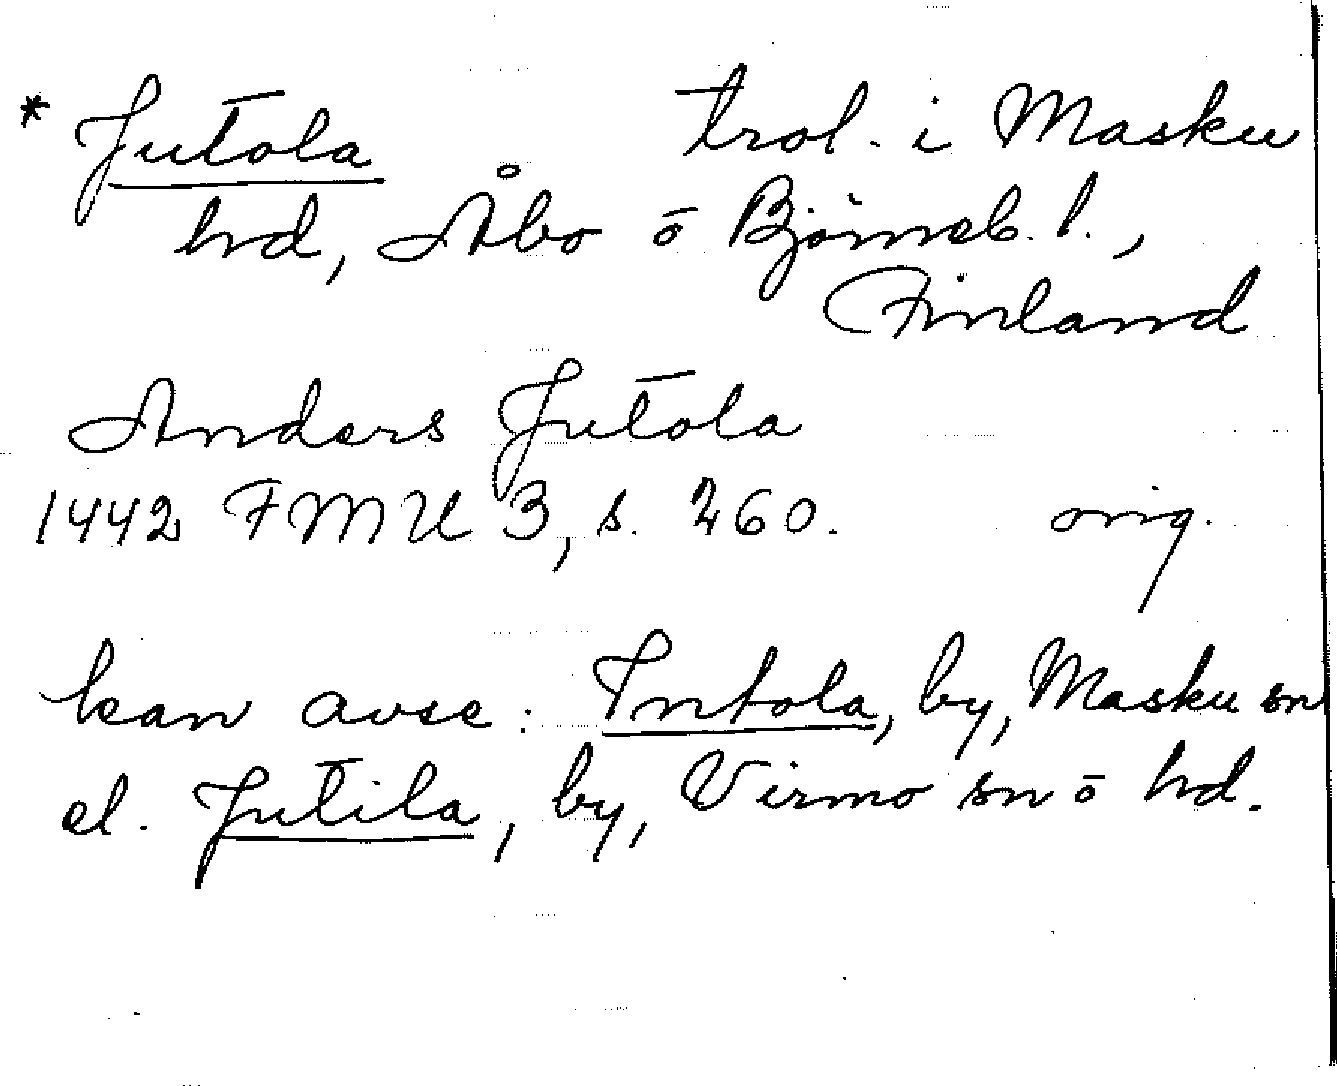 * Jutola trol. i Masku
hd, Åbo o Björneb. l.,
Finland
Anders Jutola
1442 FMU 3, s. 260. orig.
kan avse: Intola, by, Masku sn
el. Jutila, by, Virmo sn o hd.